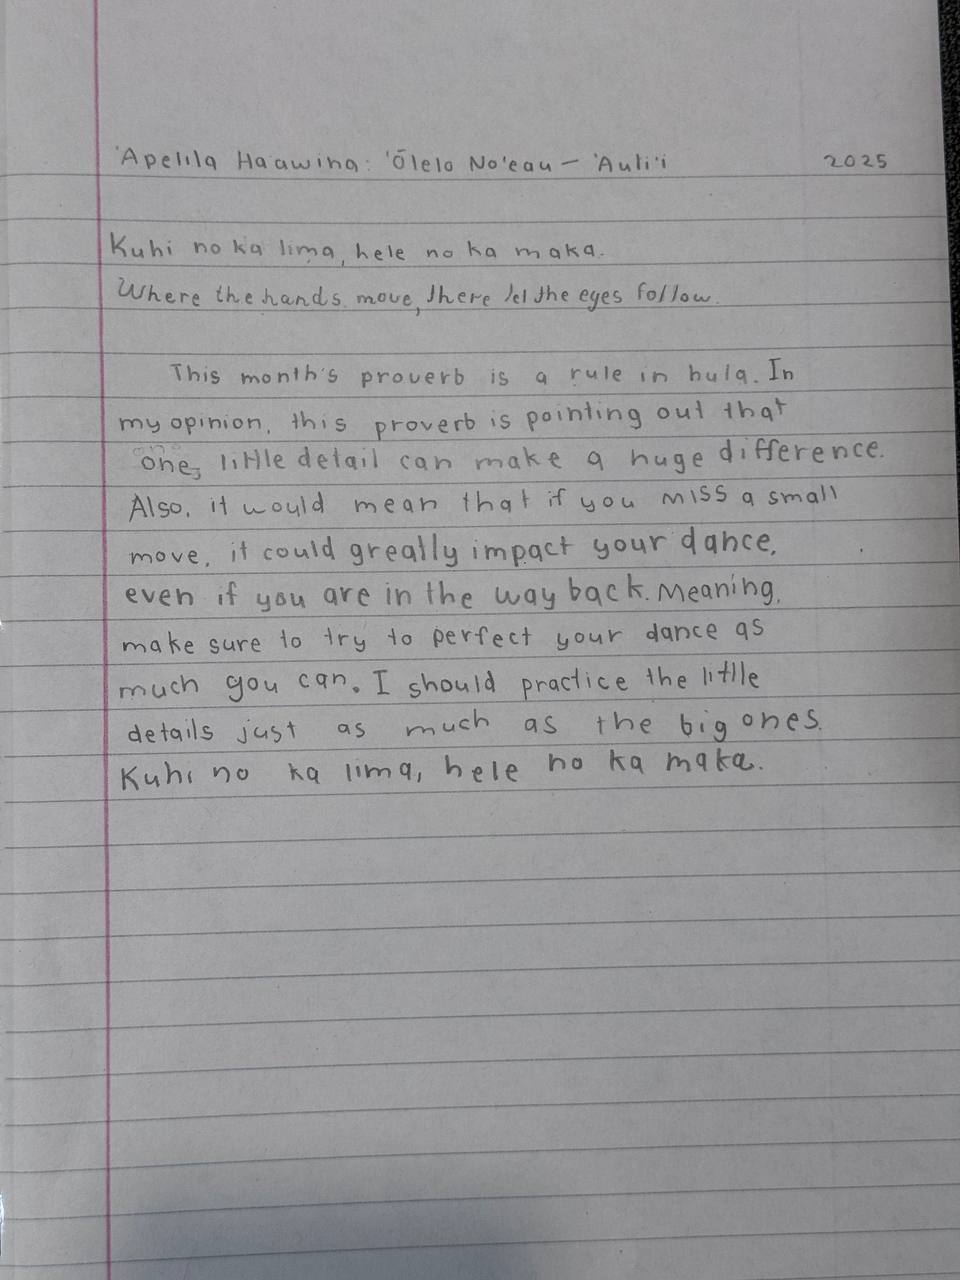 'Apelila Ha'awina: 'Ōlelo No'eau – 'Auli'i 2025
Kuhi no ka lima, hele no ka maka.
Where the hands move, there let the eyes follow.
This month's proverb is a rule in hula. In
my opinion, this proverb is pointing out that
one, little detail can make a huge difference.
Also, it would mean that if you miss a small
move, it could greatly impact your dance,
even if you are in the way back. Meaning,
make sure to try to perfect your dance as
much you can. I should practice the little
details just as much as the big ones.
Kuhi no ka lima, hele no ka maka.